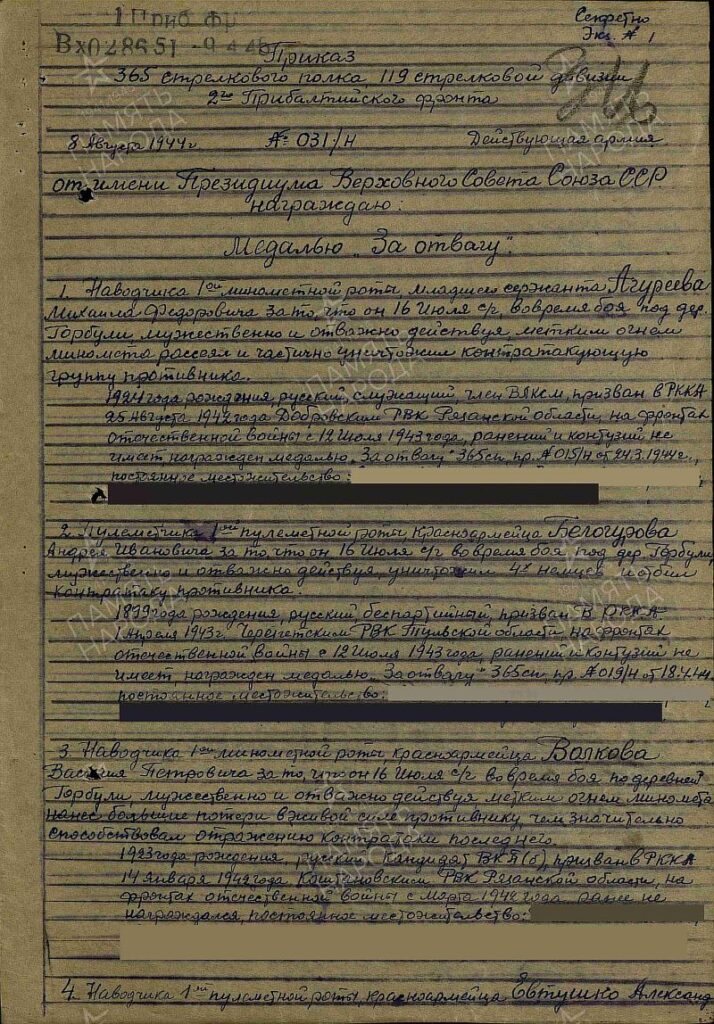 1 Приб фр
Вх028651 -9 4 45
Секретно
Экз. № 1
Приказ
365 стрелкового полка, 119 стрелковой дивизии
2го Прибалтийского фронта
8 Августа 1944г. № 031/Н Действующая армия
от имени Президиума Верховного Совета Союза ССР
награждаю:
Медалью „За отвагу":
1. Наводчика 1ой минометной роты младшего сержанта Агуреева
Михаила Федоровича за то, что он 16 Июля с/г, во время боя под дер.
Горбули, мужественно и отважно действуя метким огнем
миномета рассеял и частично уничтожил контратакующую
группу противника.
1924 года рождения, русский, служащий, член ВЛКСМ, призван в РККА
25 Августа 1942 года Добровским РВК Рязанской области, на фронтах
отечественной войны с 12 Июля 1943 года, ранений и контузий не
имеет, награжден медалью „За отвагу" 365сп, пр. №015/Н от 24.3.1944г.,
постоянное местожительство:
2. Пулеметчика 1ой пулеметной роты, красноармейца Белогурова
Андрея Ивановича за то, что он 16 Июля с/г во время боя под дер. Горбули,
мужественно и отважно действуя, уничтожил 4х немцев и отбил
контратаку противника.
1899 года рождения, русский, беспартийный, призван в РККА
1 Апреля 1943г. Черепетским РВК Тульской области, на фронтах
отечественной войны с 12 Июля 1943 года, ранений и контузий не
имеет, награжден медалью „За отвагу" 365сп, пр. №019/Н от 18.4.44г.,
постоянное местожительство:
3. Наводчика 1ой минометной роты, красноармейца Волкова
Василия Петровича за то, что он 16 Июля с/г во время боя под деревней
Горбули, мужественно и отважно действуя метким огнем миномета
нанес большие потери в живой силе противнику, чем значительно
способствовал отражению контратаки последнего.
1923 года рождения, русский, кандидат ВКП(б), призван в РККА
14 Января 1942 года, РВК Рязанской области, на
фронтах отечественной войны с марта 1942 года, ранее не
награждался, постоянное местожительство:
4. Наводчика 1ой пулеметной роты, красноармейца Евтушко Александ
ПАМЯТЬ
НАРОДА